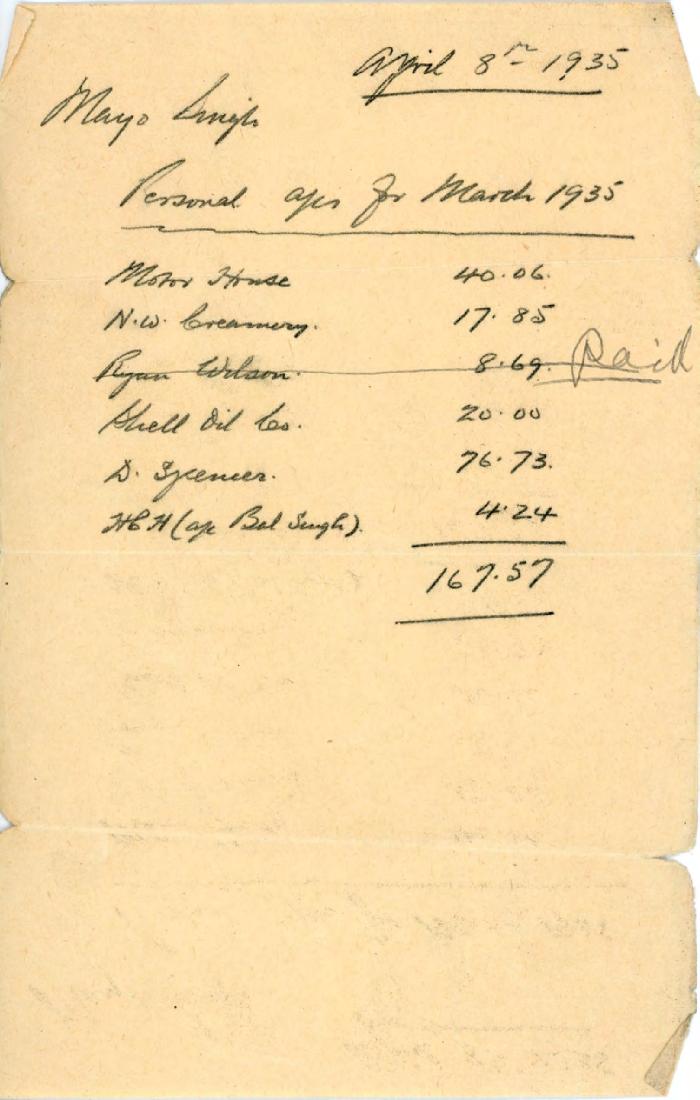 April 8th 1935
Mayo Singh
Personal a/cs for March 1935
Motor House 40.06.
N.W. Creamery. 17.85
Ryan Wilson. 8.69. Paid
Shell Oil Co. 20.00
D. Spencer. 76.73.
HCH (a/c Bal Singh). 4.24
167.57